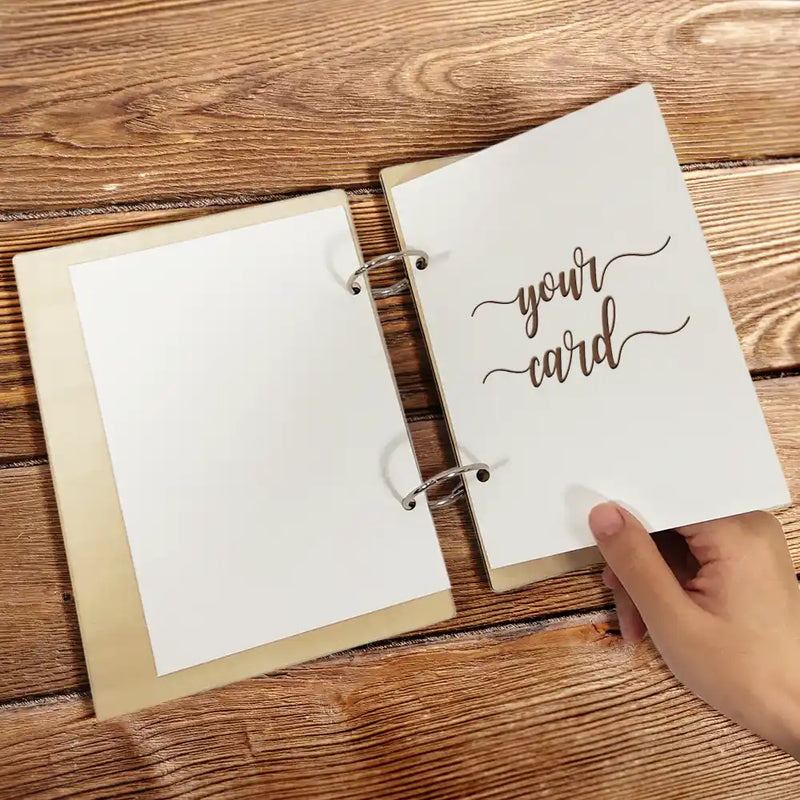 your
card